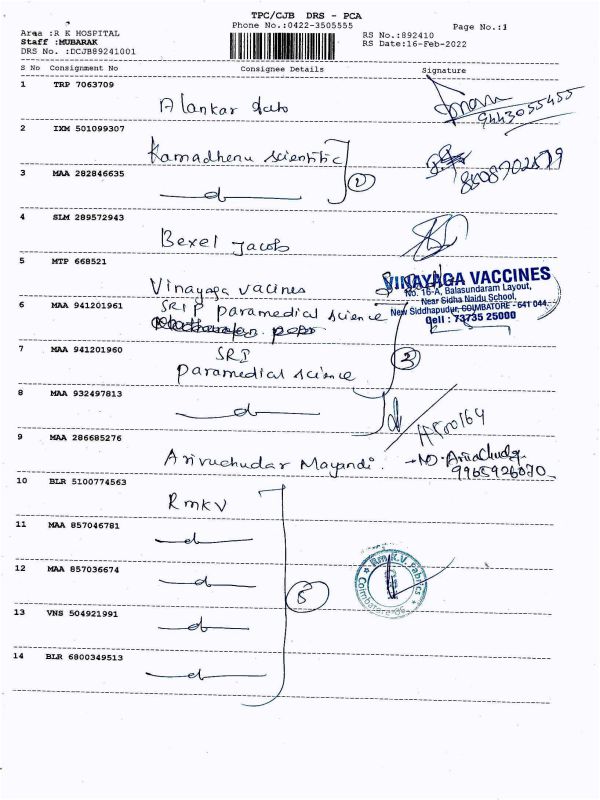 TPC/CJB DRS - PCA
Phone No.:0422-3505555
Page No.:1
Area :R K HOSPITAL
Staff :MUBARAK
DRS No. :DCJB89241001
RS No.:892410
RS Date:16-Feb-2022
S No Consignment No Consignee Details Signature
1 TRP 7063709
Alankar
9443055455
2 IXM 501099307
Kamadhenu scientific
8508702879
3 MAA 282846635
do
2
4 SLM 289572943
Bexel Jacob
5 MTP 668521
Vinayaga vacines
VINAYAGA VACCINES
No. 16-A, Balasundaram Layout,
Near Sidha Naidu School,
New Siddhapudur, COIMBATORE - 641 044.
Cell : 73735 25000
6 MAA 941201961
SRIP paramedial science
7 MAA 941201960
SRI
paramedial science
3
8 MAA 932497813
do
9 MAA 286685276
Arivuchudar Mayandi.
9968926070
10 BLR 5100774563
RmKV
11 MAA 857046781
do
12 MAA 857036674
do
5
Rm.K.V. Fabrics
Coimbatore
13 VNS 504921991
do
14 BLR 6800349513
do